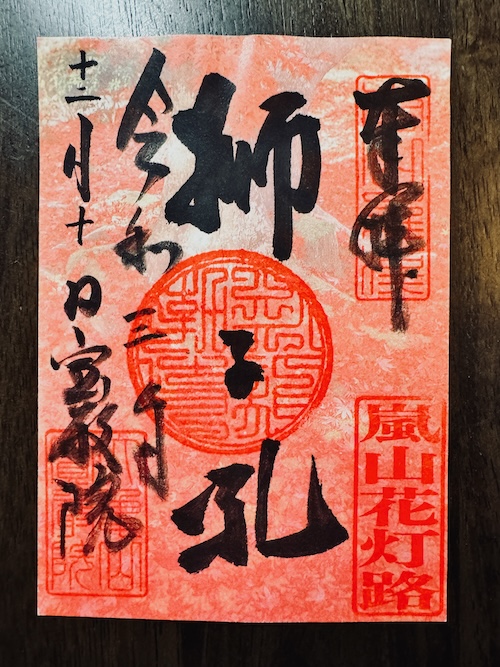 奉拝
嵐山花灯路
獅子吼
令和三年
十二月十日宝厳院